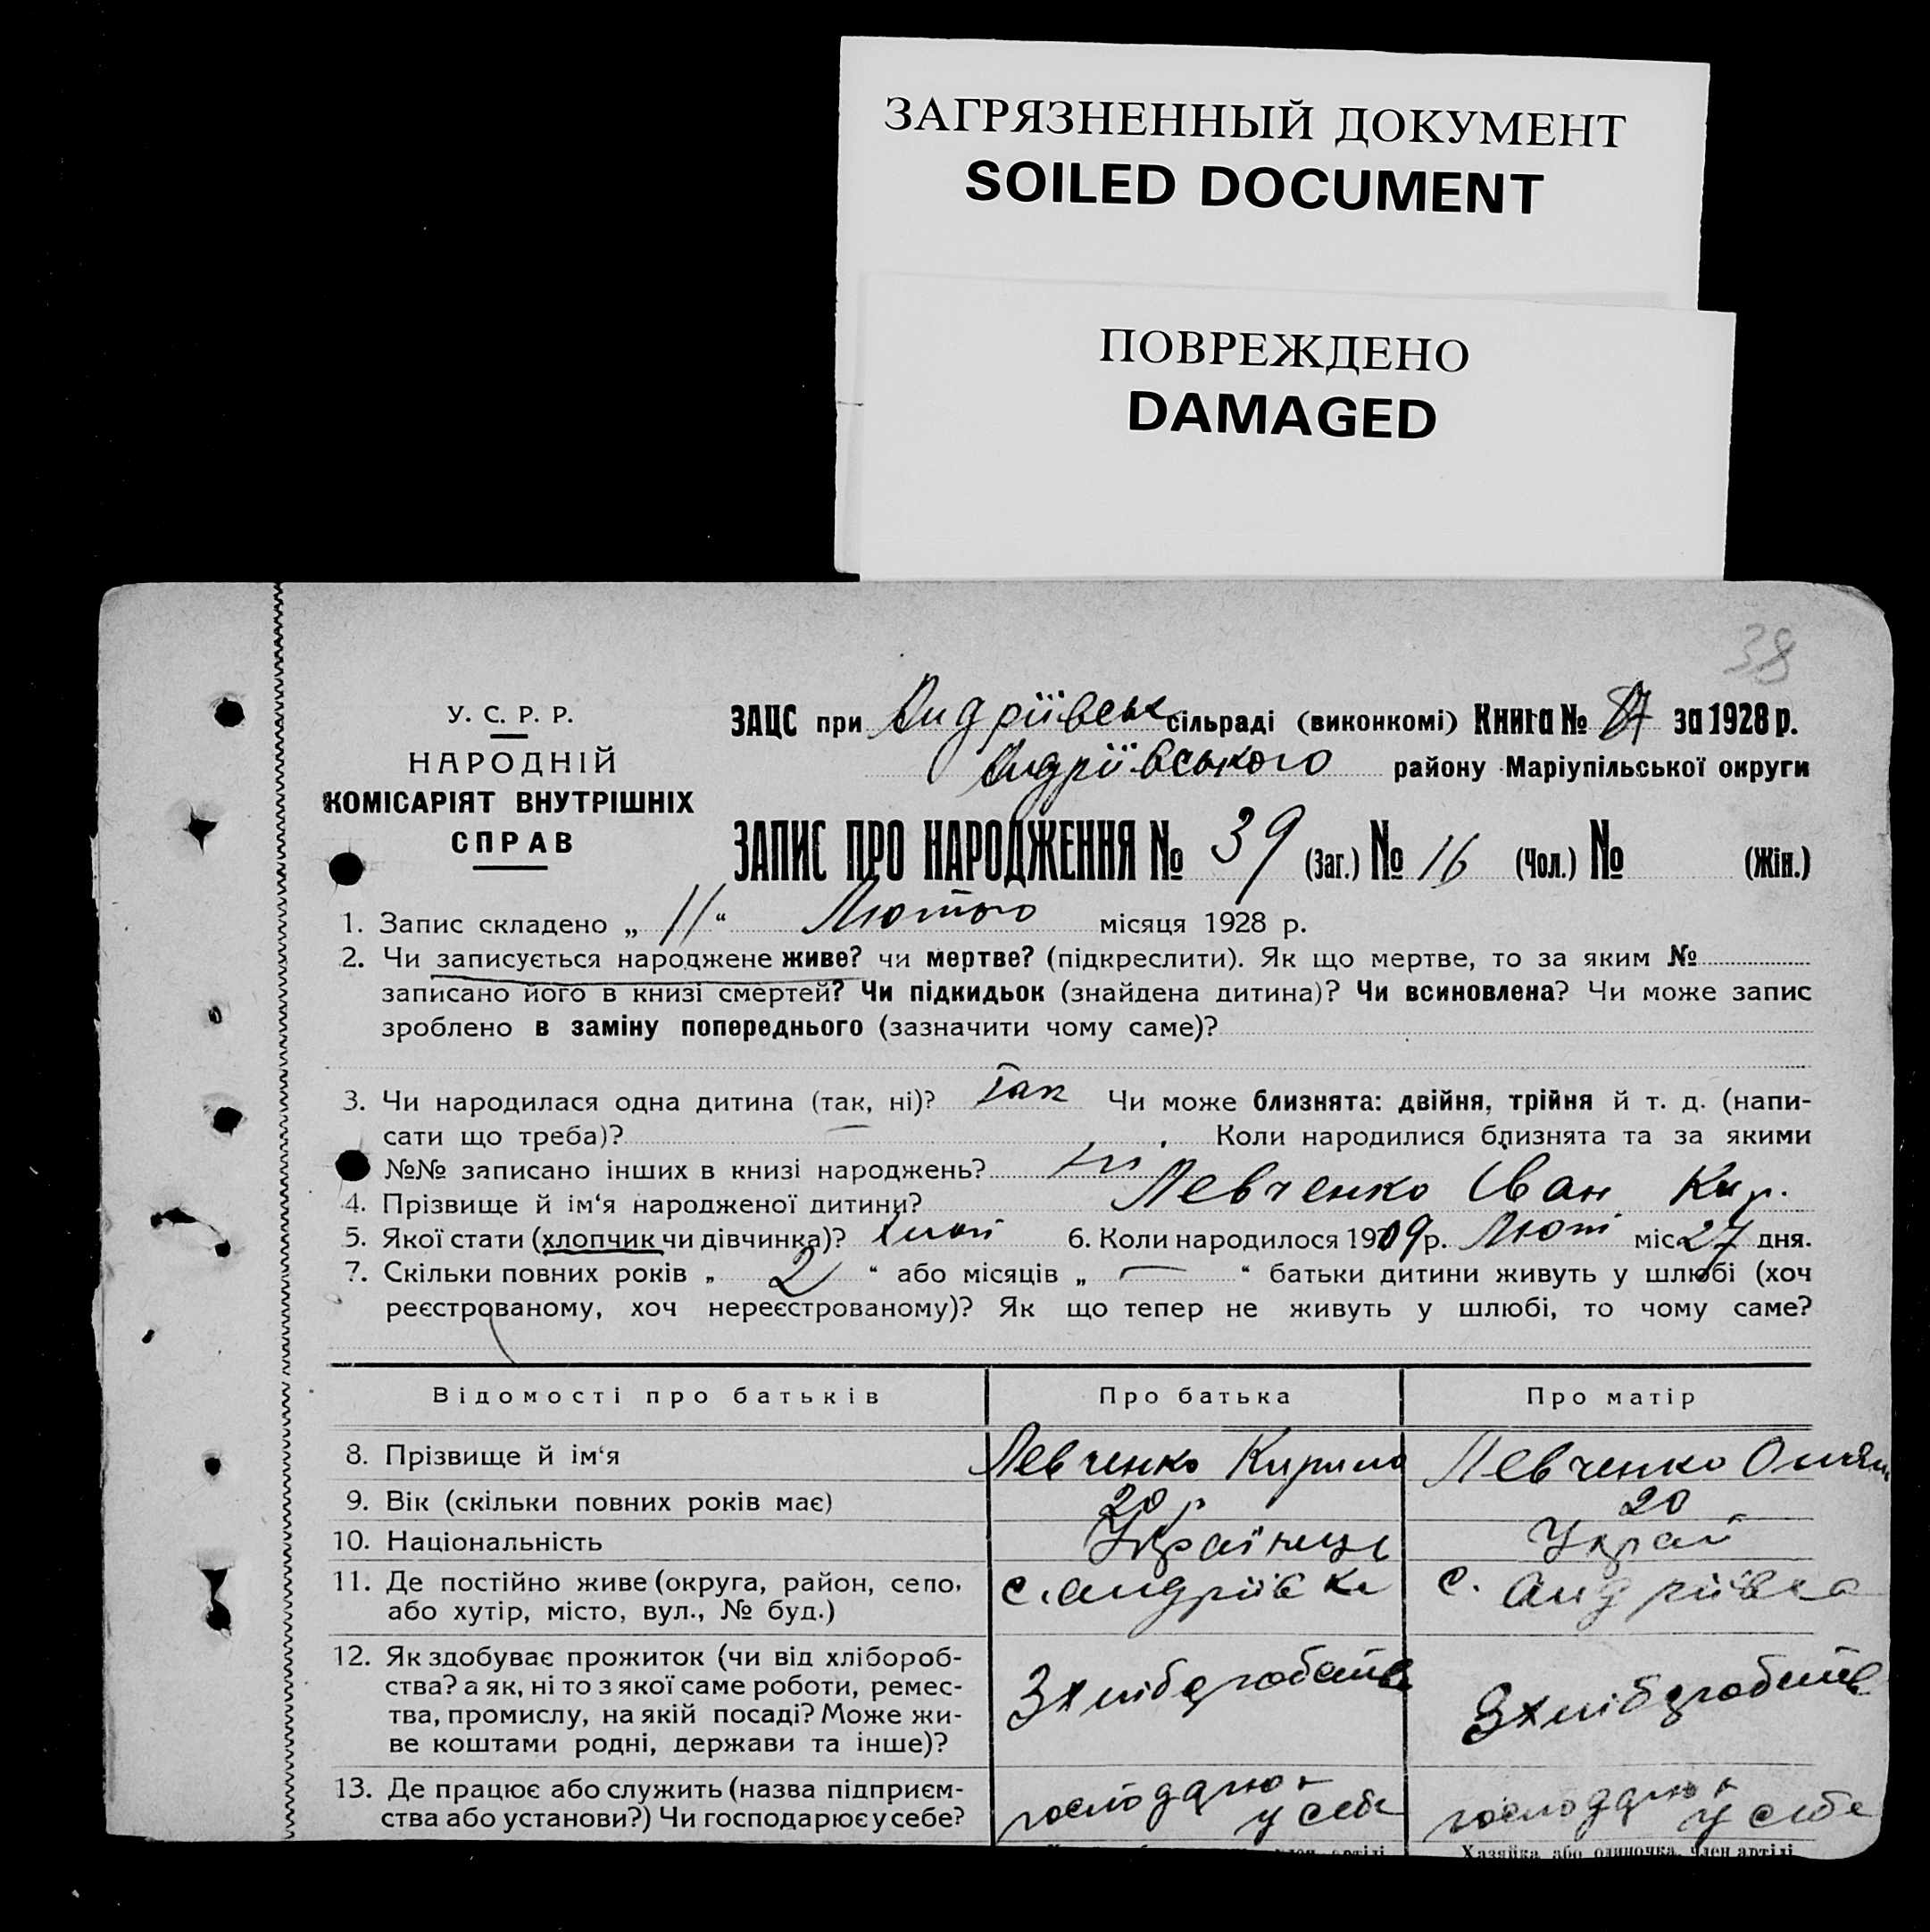 ЗАГРЯЗНЕННЫЙ ДОКУМЕНТ
SOILED DOCUMENT
ПОВРЕЖДЕНО
DAMAGED
38
У. С. Р. Р.
НАРОДНІЙ
КОМІСАРІЯТ ВНУТРІШНІХ
СПРАВ
ЗАЦС при Андріївськ сільраді (виконкомі) Книга № за 1928 р.
Андріївського району Маріупільської округи
ЗАПИС ПРО НАРОДЖЕННЯ № 39 (Заг.) № 16 (Чол.) № (Жін.)
1. Запис складено „ 11 “ Лютого місяця 1928 р.
2. Чи записується народжене живе? чи мертве? (підкреслити). Як що мертве, то за яким №
записано його в книзі смертей? Чи підкидьок (знайдена дитина)? Чи всиновлена? Чи може запис
зроблено в заміну попереднього (зазначити чому саме)?
3. Чи народилася одна дитина (так, ні)? так Чи може близнята: двійня, трійня й т. д. (напи-
сати що треба)? Коли народилися близнята та за якими
№№ записано інших в книзі народжень?
4. Прізвище й ім‘я народженої дитини? Левченко Іван Кир.
5. Якої стати (хлопчик чи дівчинка)? 6. Коли народилося 19 р. Лют міс 27 дня.
7. Скільки повних років „ 2 “ або місяців „ — “ батьки дитини живуть у шлюбі (хоч
реєстрованому, хоч нереєстрованому)? Як що тепер не живуть у шлюбі, то чому саме?
Відомості про батьків Про батька Про матір
8. Прізвище й ім‘я Левченко Кирило Левченко
9. Вік (скільки повних років має) 20 р 20
10. Національність Українець Украй
11. Де постійно живе (округа, район, село, с. Андрієвка с. Андріївка
або хутір, місто, вул., № буд.)
12. Як здобуває прожиток (чи від хлібороб-
ства? а як, ні то з якої саме роботи, ремес- З хлібдробств З хлібдробств
тва, промислу, на якій посаді? Може жи-
ве коштами родні, держави та інше)?
13. Де працює або служить (назва підприєм- господарює господарює
ства або установи?) Чи господарює у себе? у себе у себе
Хазяйка або одиночка, член артілі